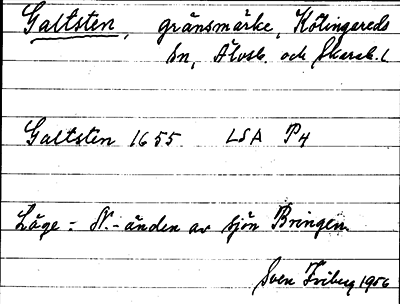 Galtsten, gränsmärke, Kölingareds
sn, Älvsb. och Skarab. l
Galtsten 1655. LSA P4
Läge: N.-änden av sjön Bringen.
Sven Friberg 1956